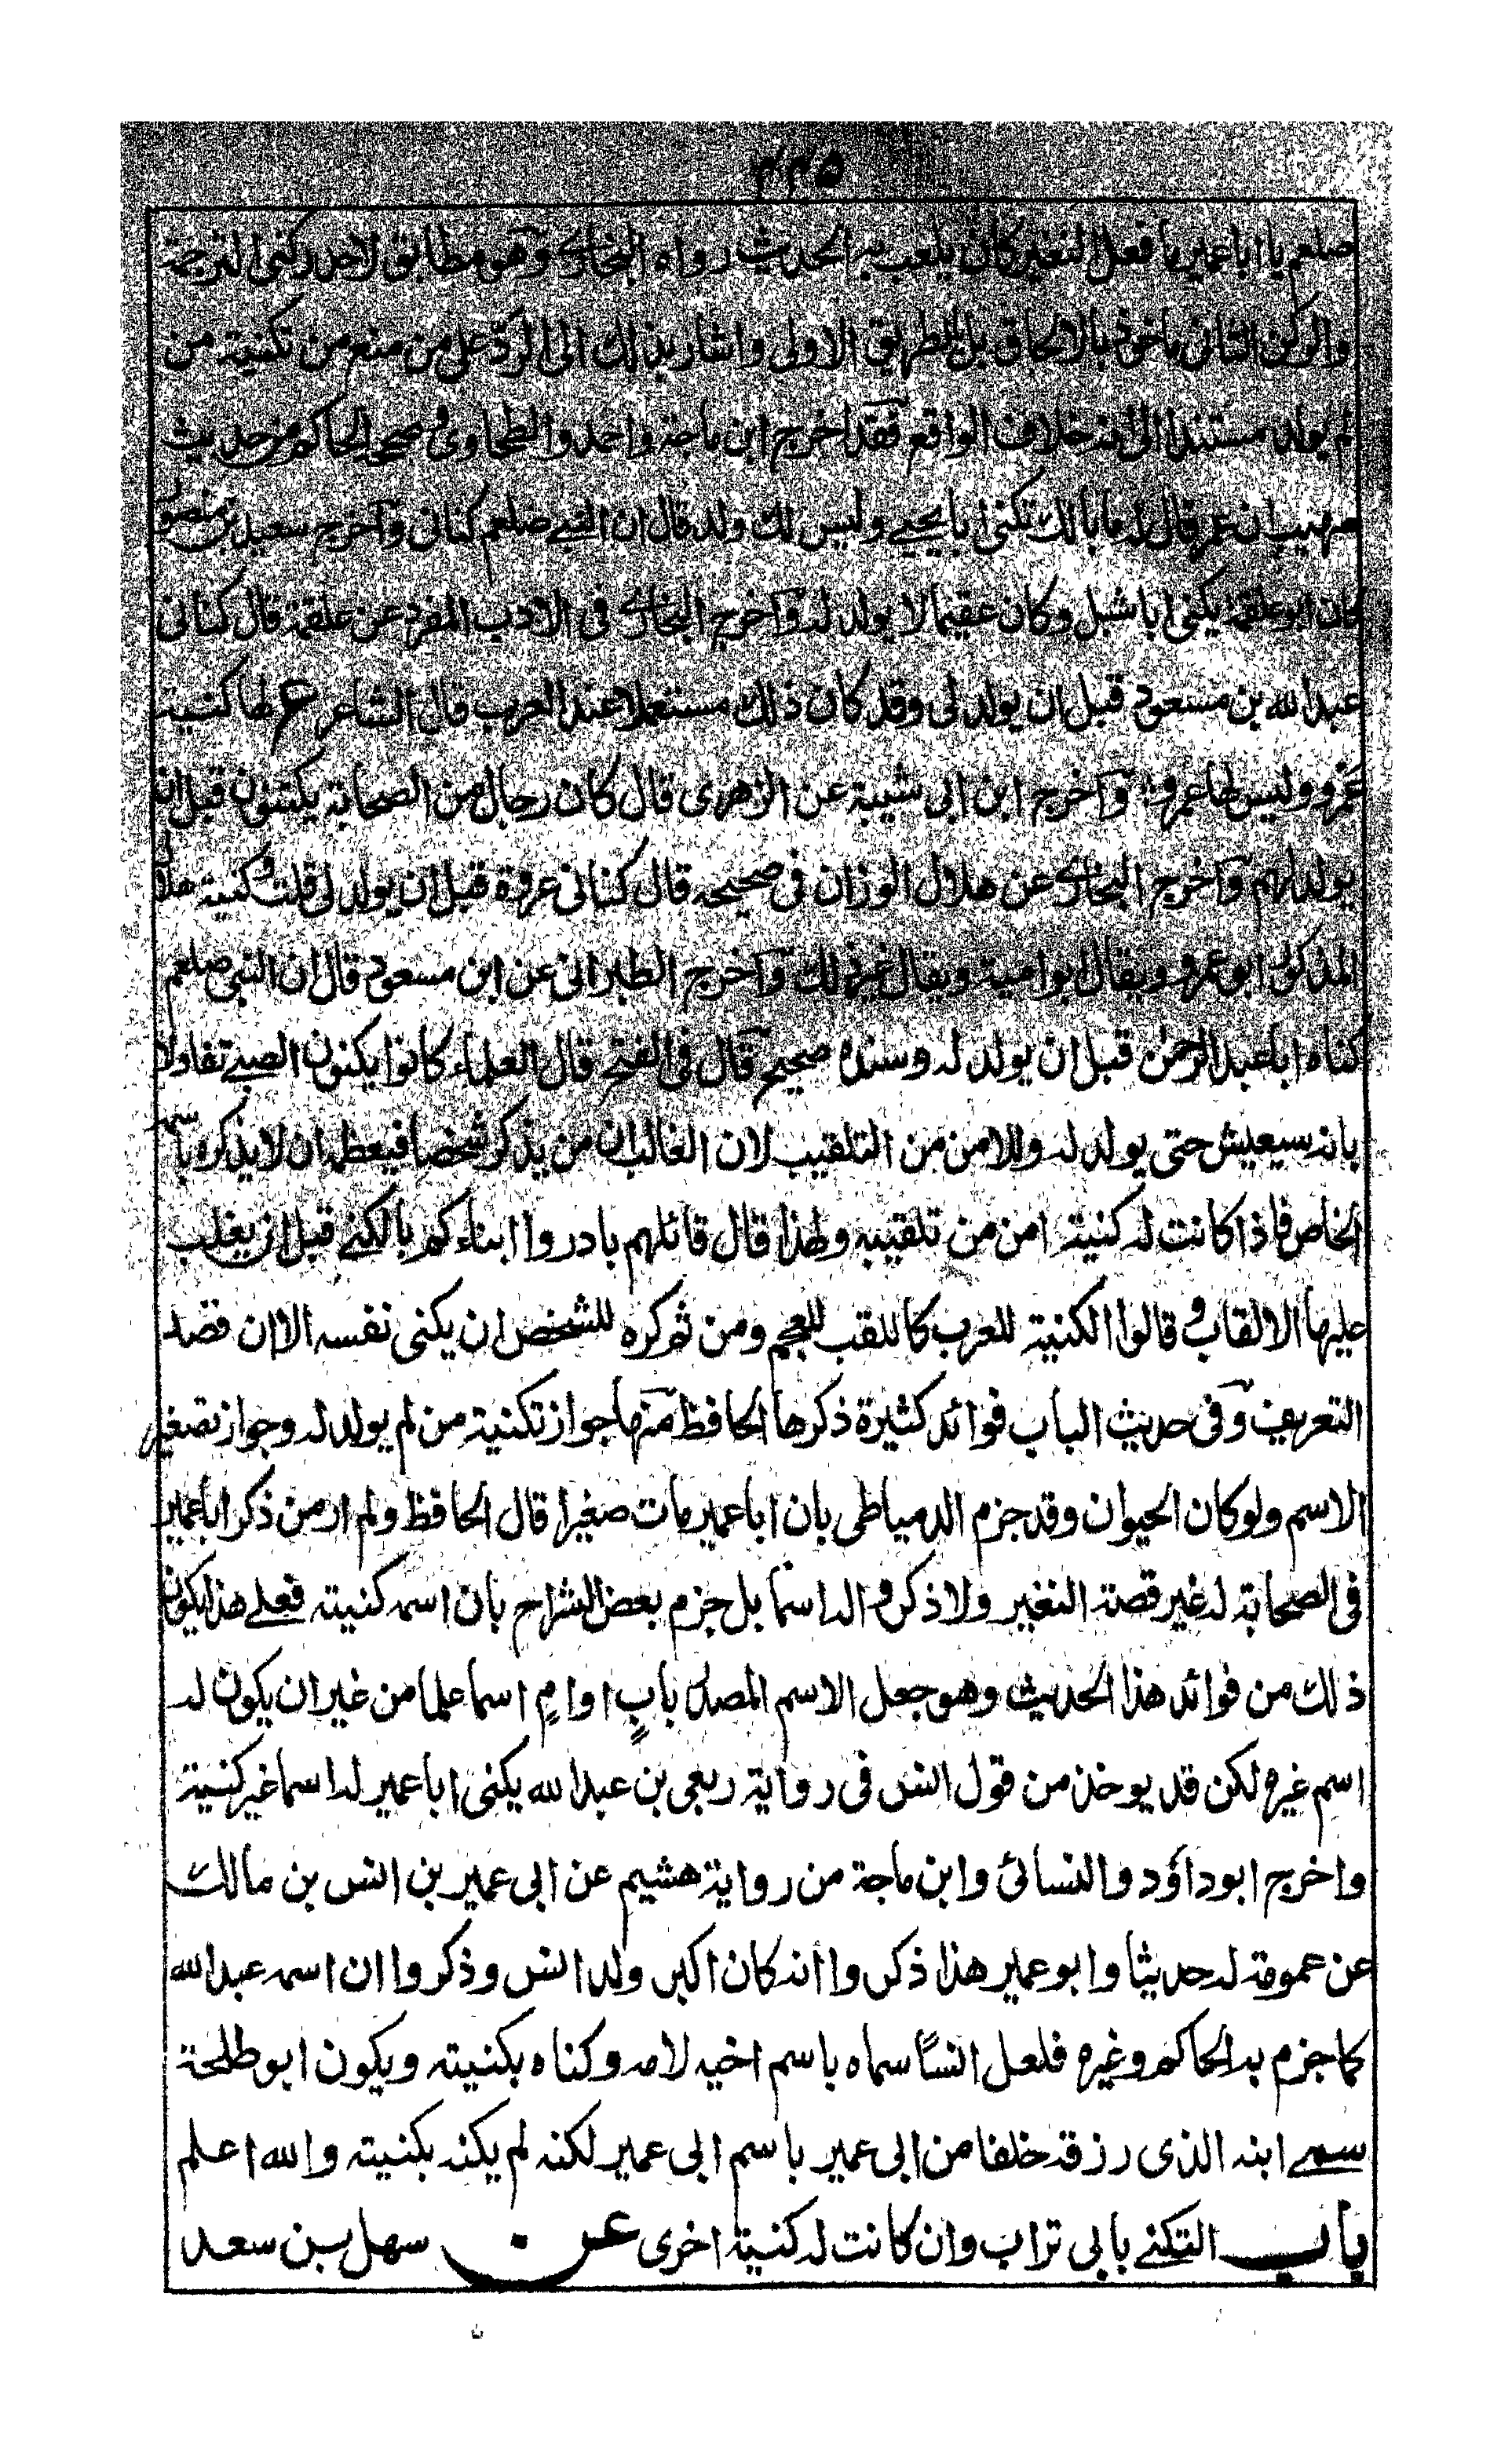 ٣٢٥
صلعم يا ابا عمير ما فعل النغير كان يلعب به الحديث رواه البخاري وهو مطابق لاحد ركنى الترجمة
والركن الثانى ماخوذ بالالحاق بل بالطريق الاولى واشار بذلك الى الرد على من منع من تكنية من
لم يولد مستندا الى انه خلاف الواقع فقد اخرج ابن ماجة واحمد والطحاوى وصححه الحاكم من حديث
صهيب ان عمر قال له ما بالك تكنى ابا يحيے وليس لك ولد قال ان النبے صلعم كنانى واخرج سعيد بن منصور
كان ابو علقمة يكنى ابا شبل وكان عقيما لا يولد له واخرج البخاري فى الادب المفرد عن علقمة قال كنانى
عبد الله بن مسعود قبل ان يولد لى وقد كان ذلك مستعملا عند العرب قال الشاعر ع لها كنية
عمرو وليس لها عمرو؛ واخرج ابن ابى شيبة عن الزهرى قال كان رجال من الصحابة يكتنون قبل ان
يولد لهم واخرج البخاري عن هلال الوزان فى صحيحه قال كنانى عروة قبل ان يولد لى قلت وكنية هلال
المذكور ابو عمرو ويقال ابو امية ويقال غير ذلك واخرج الطبرانى عن ابن مسعود قال ان النبى صلعم
كناه ابا عبد الرحمن قبل ان يولد له وسنده صحيح قال فى الفتح قال العلماء كانوا يكنون الصبے تفاولا
بانه سيعيش حتى يولد له وللامن من التلقيب لان الغالب ان من يذكر شخصا فيعظمه ان لا يذكره باسمه
الخاص فاذا كانت له كنية امن من تلقيبه ولهذا قال قائلهم بادروا ابناءكم بالكنے قبل ان يغلب
عليها الالقاب وقالوا الكنية للعرب كاللقب للعجم ومن ثم كره للشخص ان يكنى نفسه الا ان قصد
التعريف وفى حديث الباب فوائد كثيرة ذكرها الحافظ منها جواز تكنية من لم يولد له وجواز تصغير
الاسم ولو كان الحيوان وقد جزم الدمياطى بان ابا عمير مات صغيرا قال الحافظ ولم ار من ذكر ابا عمير
فى الصحابة له غير قصة النغير ولا ذكروا له اسما بل جزم بعض الشراح بان اسمه كنيته فعلے هذا يكون
ذلك من فوائد هذا الحديث وهو جعل الاسم المصدر بابٍ او امٍ اسما علما من غير ان يكون له
اسم غيره لكن قد يوخذ من قول انس فى رواية ربعى بن عبد الله يكنى ابا عمير له اسما غير كنية
واخرج ابو داؤد والنسائى وابن ماجة من رواية هشيم عن ابى عمير بن انس بن مالك
عن عمومة له حديثا وابو عمير هذا ذكروا انه كان اكبر ولد انس وذكروا ان اسمه عبد الله
كما جزم به الحاكم وغيره فلعل انسًا سماه باسم اخيه لامه وكناه بكنيته ويكون ابو طلحة
سمے ابنه الذى رزقه خلفا من ابى عمير باسم ابى عمير لكنه لم يكنه بكنيته والله اعلم
باب التكنے بابى تراب وان كانت له كنية اخرى عن سهل بن سعد